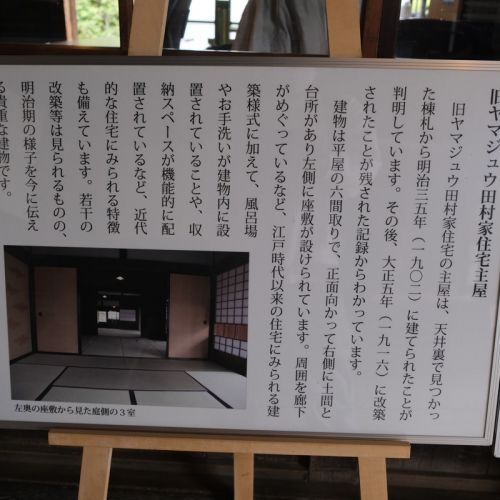 旧ヤマジュウ田村家住宅主屋
旧ヤマジュウ田村家住宅の主屋は、天井裏で見つかっ
た棟札から明治三五年（一九〇二）に建てられたことが
判明しています。その後、大正五年（一九一六）に改築
されたことが残された記録からわかっています。
建物は平屋の六間取りで、正面向かって右側に土間と
台所があり左側に座敷が設けられています。周囲を廊下
がめぐっているなど、江戸時代以来の住宅にみられる建
築様式に加えて、風呂場
やお手洗いが建物内に設
置されていることや、収
納スペースが機能的に配
置されているなど、近代
的な住宅にみられる特徴
も備えています。若干の
改築等は見られるものの、
明治期の様子を今に伝え
る貴重な建物です。
左奥の座敷から見た庭側の３室